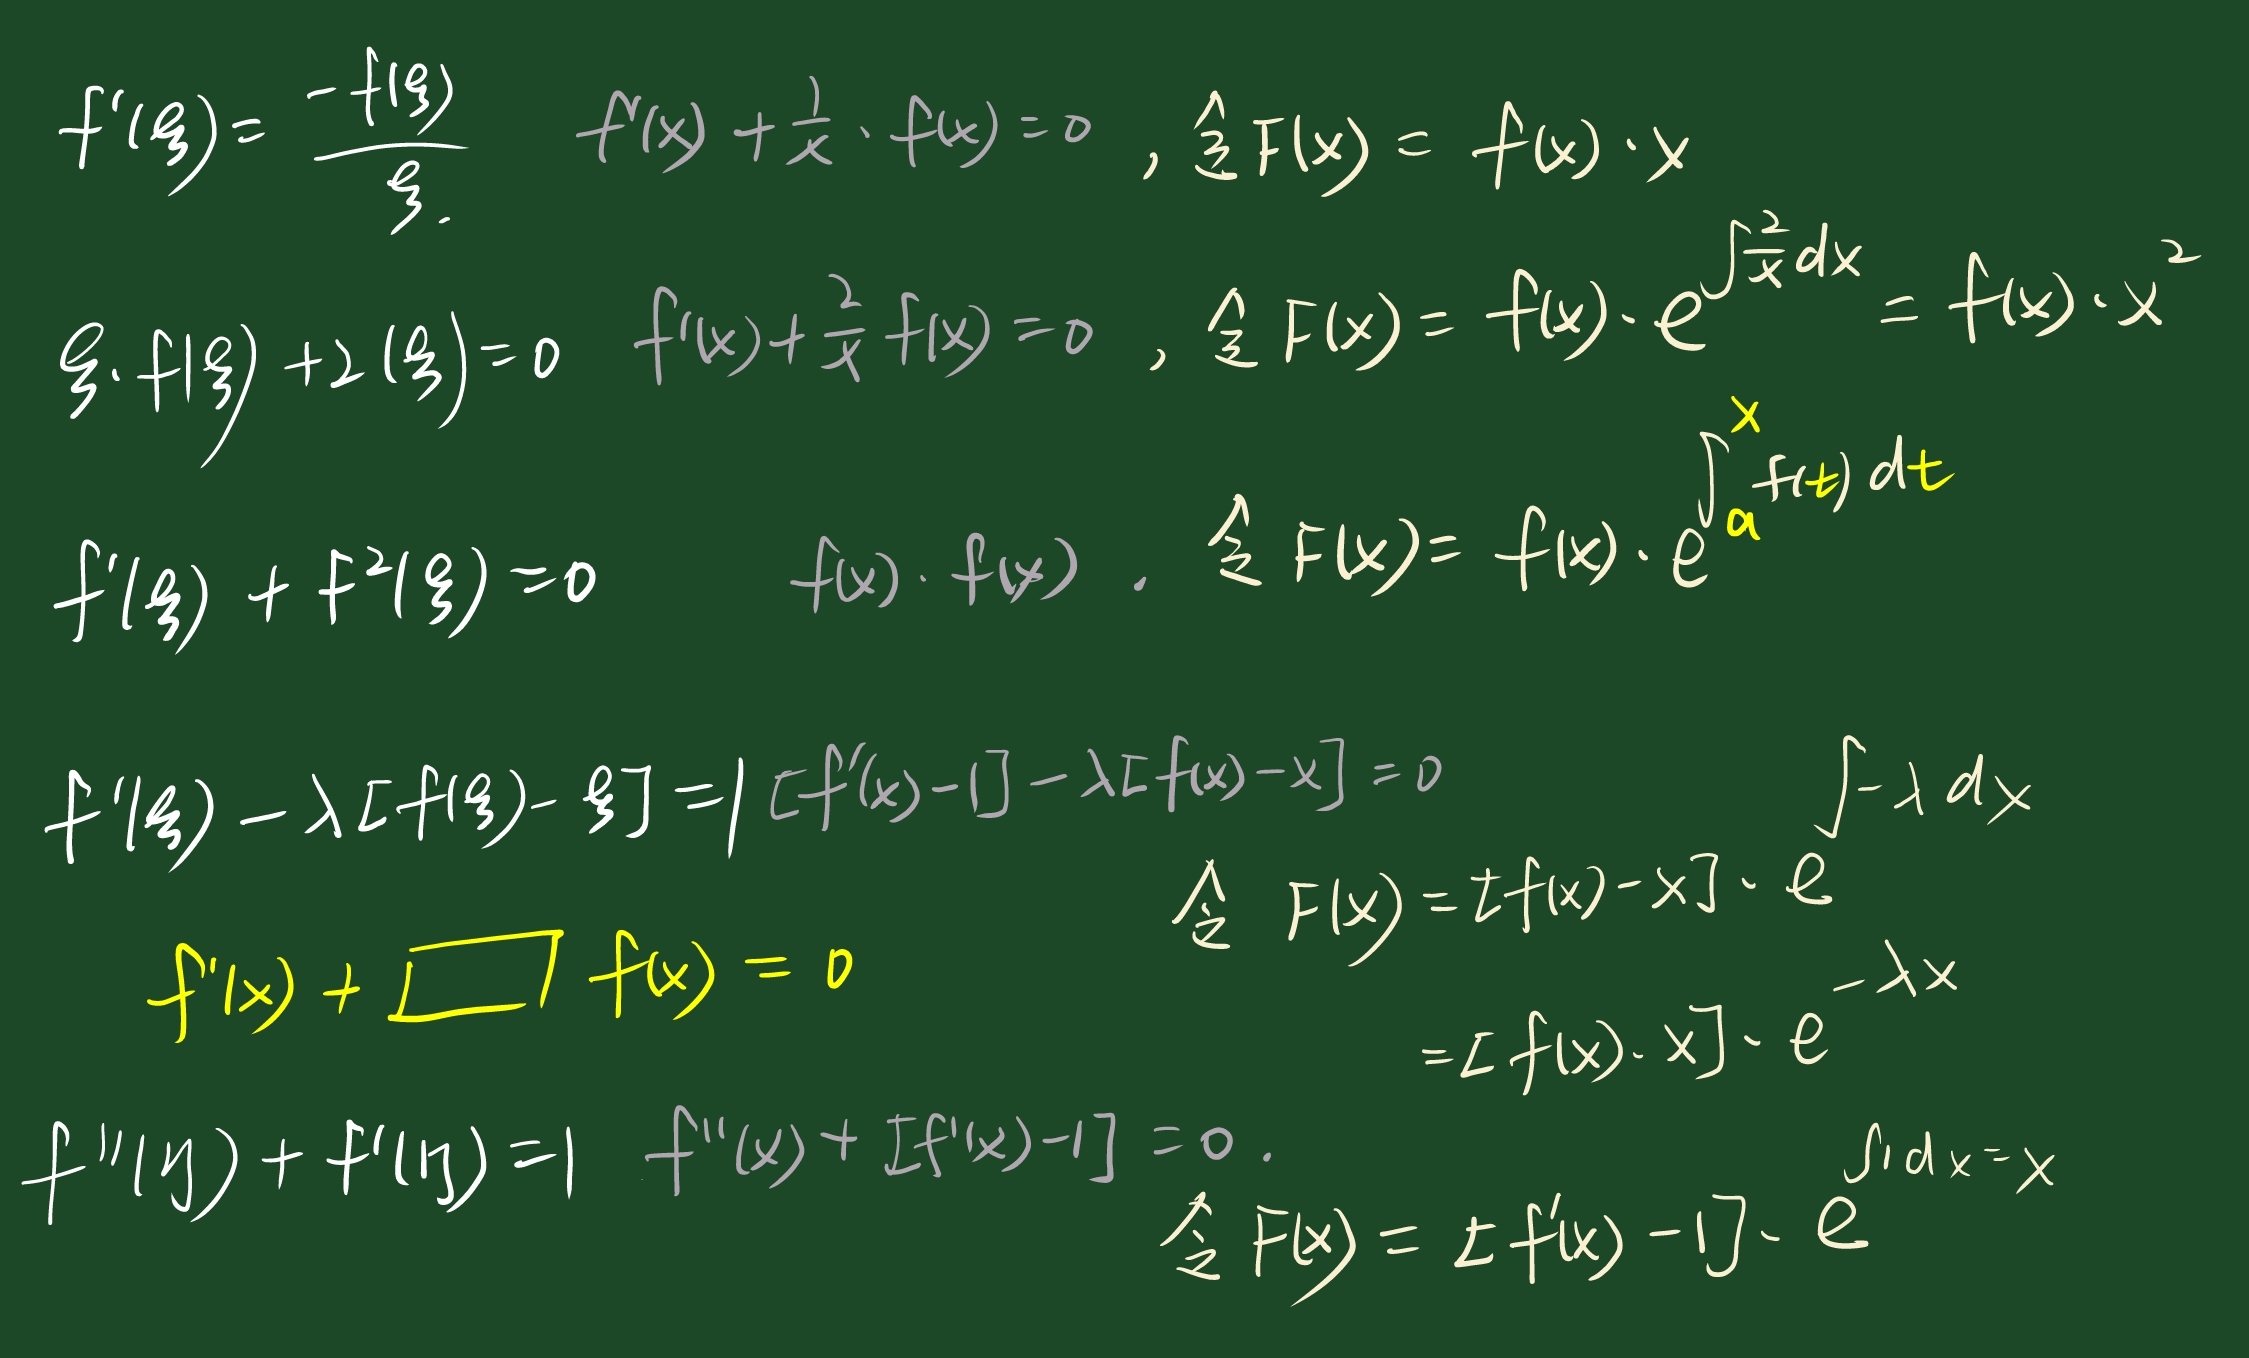 f'(ξ) = -f(ξ)/ξ. f'(x) + 1/x · f(x) = 0 , 令 F(x) = f(x) · x
ξ · f(ξ) + 2(ξ) = 0 f'(x) + 2/x f(x) = 0 , 令 F(x) = f(x) · e^{∫ 2/x dx} = f(x) · x²
f'(ξ) + f²(ξ) = 0 f(x) · f(x) . 令 F(x) = f(x) · e^{∫_a^x f(t) dt}
f'(ξ) - λ[f(ξ) - ξ] = 1 [f'(x) - 1] - λ[f(x) - x] = 0
令 F(x) = [f(x) - x] · e^{∫ -λ dx}
f'(x) + □ f(x) = 0
= [f(x) · x] · e^{-λx}
f''(η) + f'(η) = 1 f''(x) + [f'(x) - 1] = 0 .
令 F(x) = [f'(x) - 1] · e^{∫ 1 dx = x}